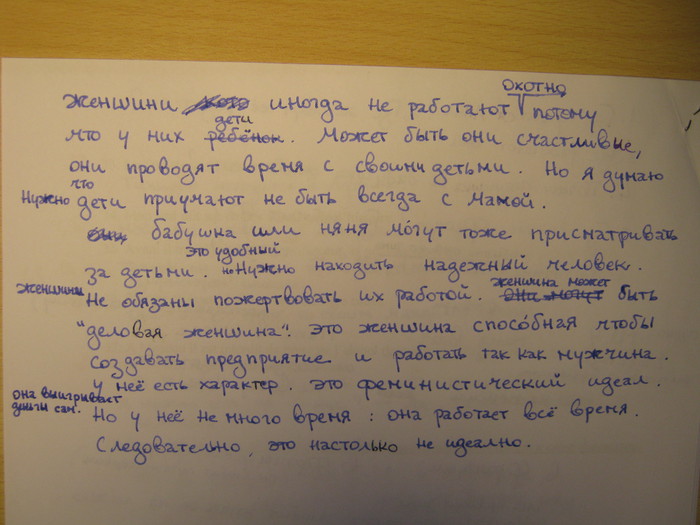 охотно
женшини иногда не работают потому
дети
что у них ребёнок. Может быть они счастливые,
они проводят время с своими детьми. Но я думаю
что
Нужно дети приучают не быть всегда с мамой.
бабушна или няня мóгут тоже присматривать
это удобный
за детьми. но Нужно находить надежный человек.
женшины женщина может
Не обязаны пожертвовать их работой. они могут быть
"деловая женшина". это женшина спосóбная чтобы
создавать предприятие и работать так как мужчина.
у неё есть характер. это феминистический идеал.
она выигривает
деньги сам.
Но у неё не много время : она работает всё время.
Следовательно, это настолько не идеално.